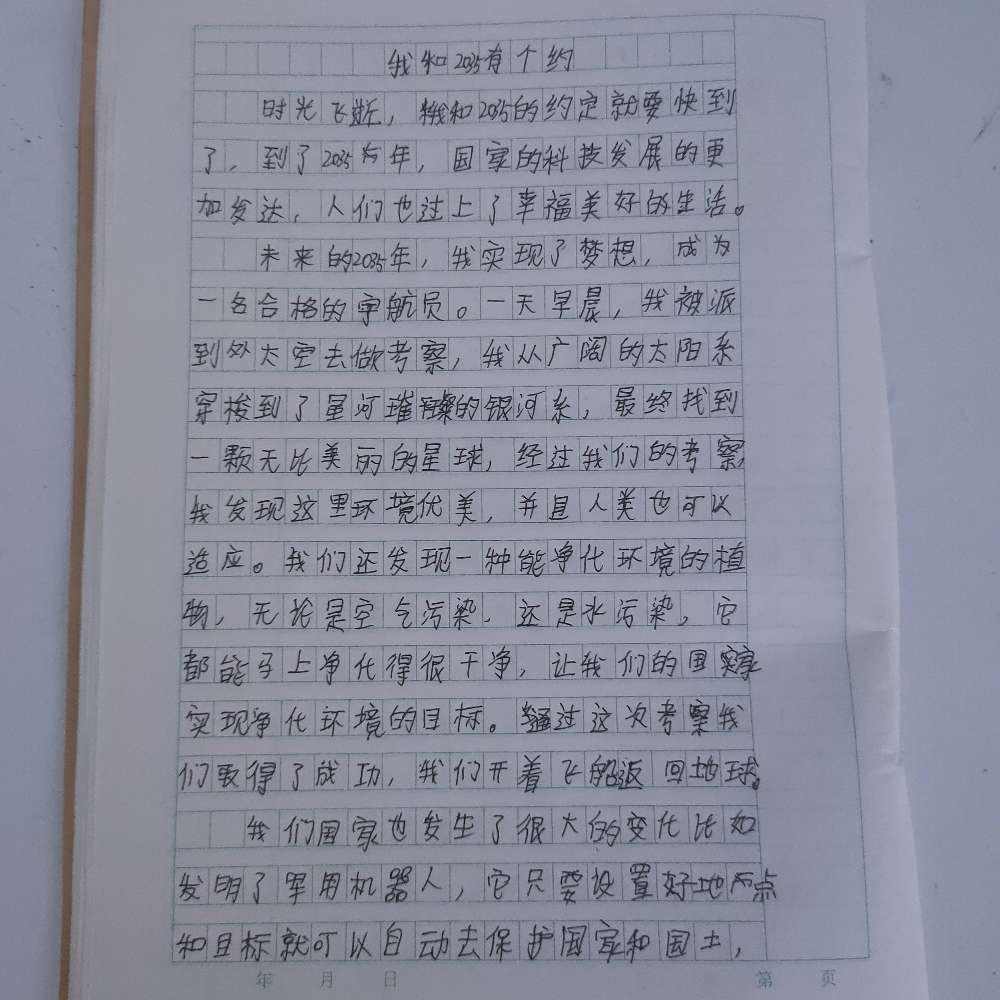 我和2035有个约
时光飞逝，我和2035的约定就要快到
了，到了2035年，国家的科技发展的更
加发达，人们也过上了幸福美好的生活。
未来的2035年，我实现了梦想，成为
一名合格的宇航员。一天早晨，我被派
到外太空去做考察，我从广阔的太阳系
穿梭到了星河璀璨的银河系，最终找到
一颗无比美丽的星球，经过我们的考察，
我发现这里环境优美，并且人类也可以
适应。我们还发现一种能净化环境的植
物，无论是空气污染，还是水污染，它
都能马上净化得很干净，让我们的国家
实现净化环境的目标。通过这次考察我
们取得了成功，我们开着飞船返回地球。
我们国家也发生了很大的变化比如
发明了军用机器人，它只要设置好地点
和目标就可以自动去保护国家和国土，
年 月 日 第 页